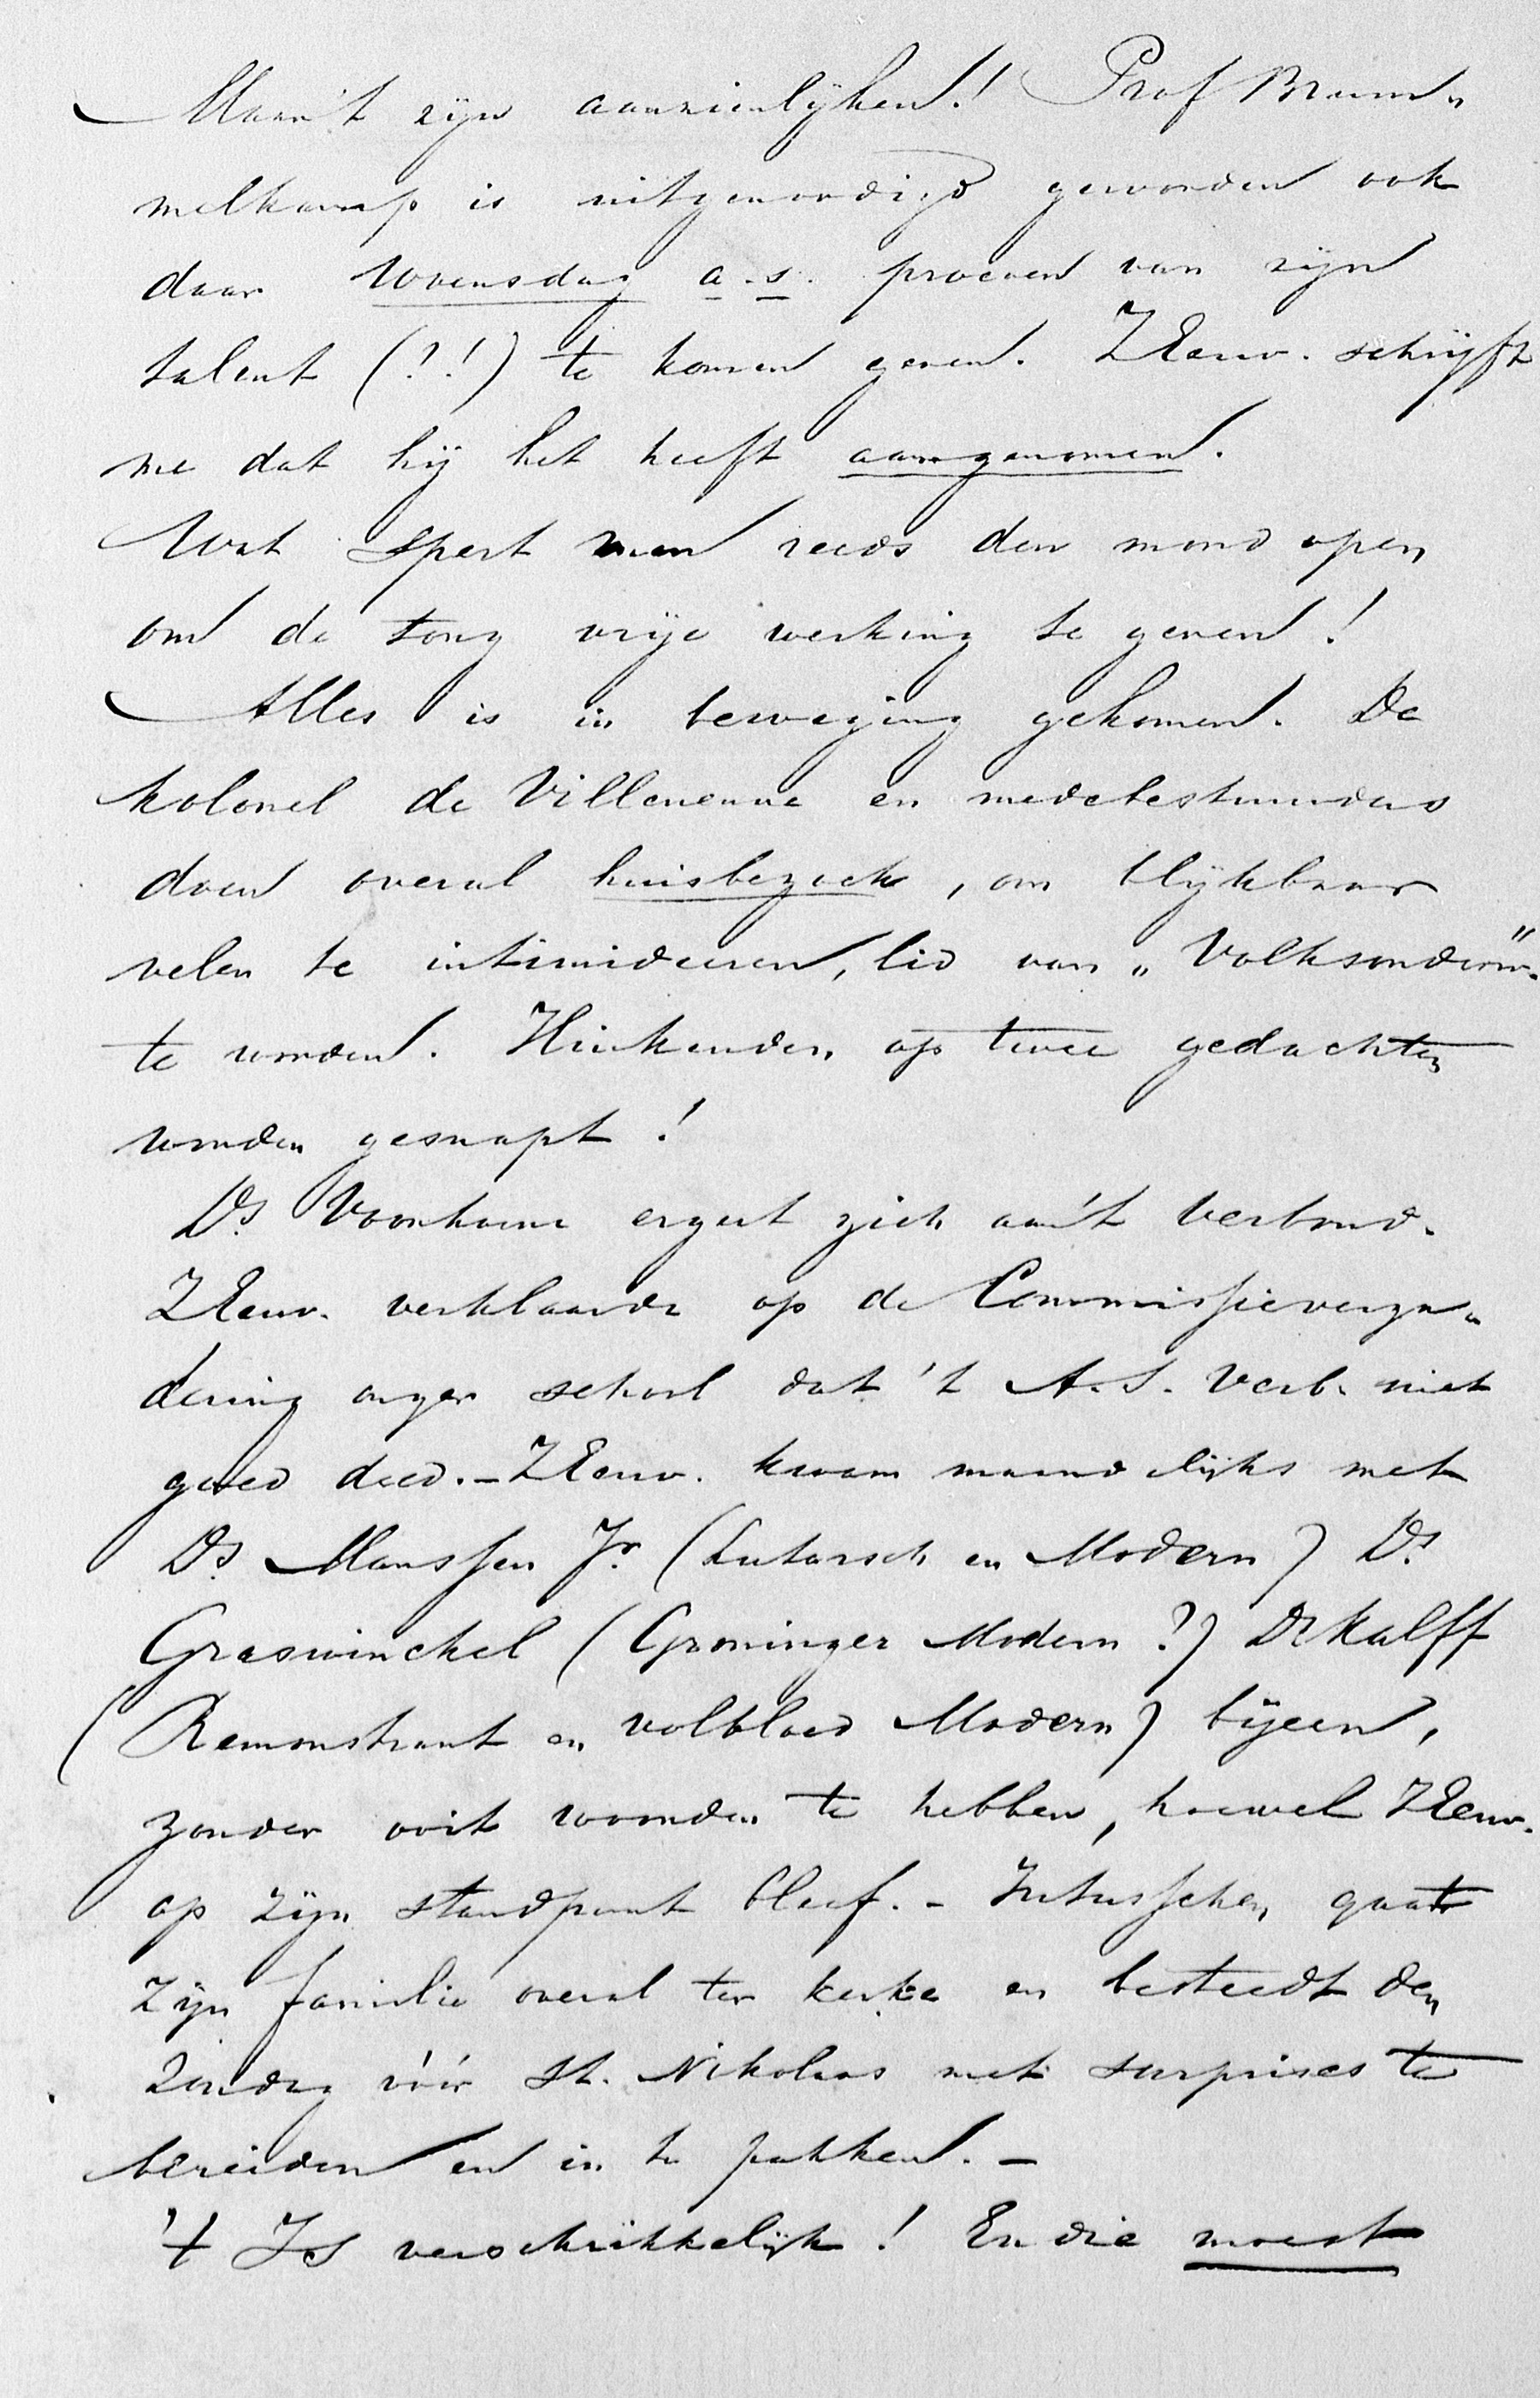 Maar 't zijn aanzienlijken! Prof Brum„
melkamp is uitgenoodigd geworden ook
daar Woensdag a.s. proeven van zijn
talent (?!) te komen geven. ZEerw. schrijft
me dat hij het heeft aangenomen.
Wat spert men reeds den mond open
om de tong vrije werking te geven!
Alles is in beweging gekomen. De
kolonel de Villeneuve en medebestuurders
doen overal huisbezoek, om blijkbaar
velen te intimideeren, lid van „Volksonderw."
te worden. Hinkenden op twee gedachten
worden gesnapt!
Ds. Voorhoeve ergert zich aan 't Verbond.
ZEerw. verklaarde op de Commissieverga„
dering onzer school dat 't A.S. Verb. niet
goed deed. - ZEerw. kwam maandelijks met
Ds. Manssen Jr. (Luthersch en Modern) Ds.
Graswinckel (Groninger Modern?) Ds Kalff
(Remonstrant en volbloed Modern) bijeen,
zonder ooit woorden te hebben, hoewel ZEerw.
op zijn standpunt bleef. - Intusschen gaat
zijn familie overal ter kerke en besteedt den
Zondag vóór St. Nikolaas met surprises te
bereiden en in te pakken. -
't Is verschrikkelijk! En die moest